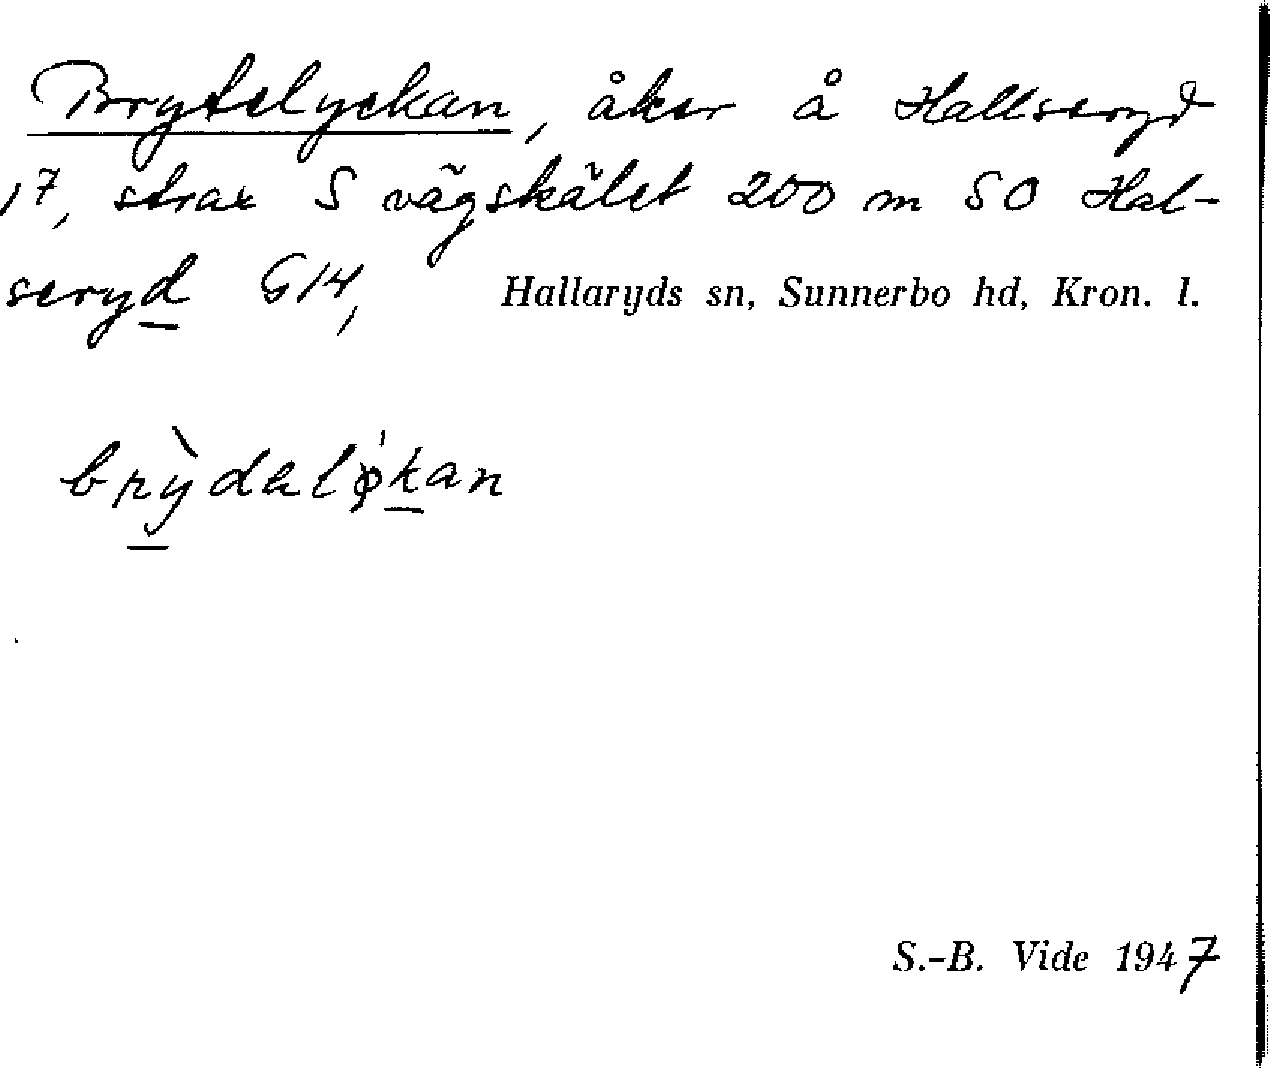 Brytelyckan, åker å Hallseryd
17, strax S vägskälet 200 m SO Hal-
seryd G14,
Hallaryds sn, Sunnerbo hd, Kron. l.
brỳdaløkan
S.-B. Vide 1947